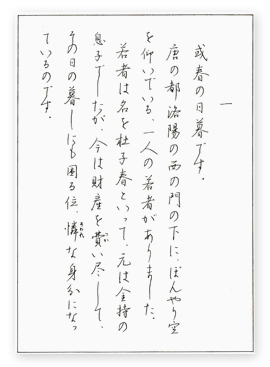 一
或春の日暮です。
唐の都洛陽の西の門の下に、ぼんやり空
を仰いでいる、一人の若者がありました。
若者は名を杜子春といって、元は金持の
息子でしたが、今は財産を費い尽して、
その日の暮しにも困る位、憐な身分になっ
ているのです。